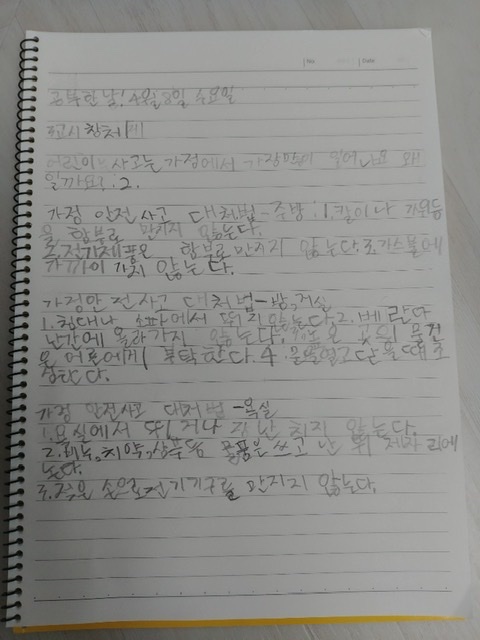 공부한 날! 4월 8일 수요일
1교시 창체
어린이 사고는 가정에서 가장 많이 일어나요 왜
일까요? : 2.
가정 안전사고 대처법-주방 : 1. 칼이나 가위등
을 함부로 만지지 않는다.
2. 전기제품은 함부로 만지지 않는다. 3. 가스불에
가까이 가지 않는다.
가정안전사고 대처법-방, 거실
1. 침대나 소파에서 뛰지 않는다. 2. 베란다
난간에 올라가지 않는다. 3. 높은 곳의 물건
은 어른에게 부탁한다. 4. 문을 열고 닫을 때 조
심한다.
가정 안전사고 대처법-욕실
1. 욕실에서 뛰거나 장난 치지 않는다.
2. 비누, 치약, 샴푸등 용품은 쓰고 난 뒤 제자리에
놓는다.
3. 젖은 손으로 전기기구를 만지지 않는다.